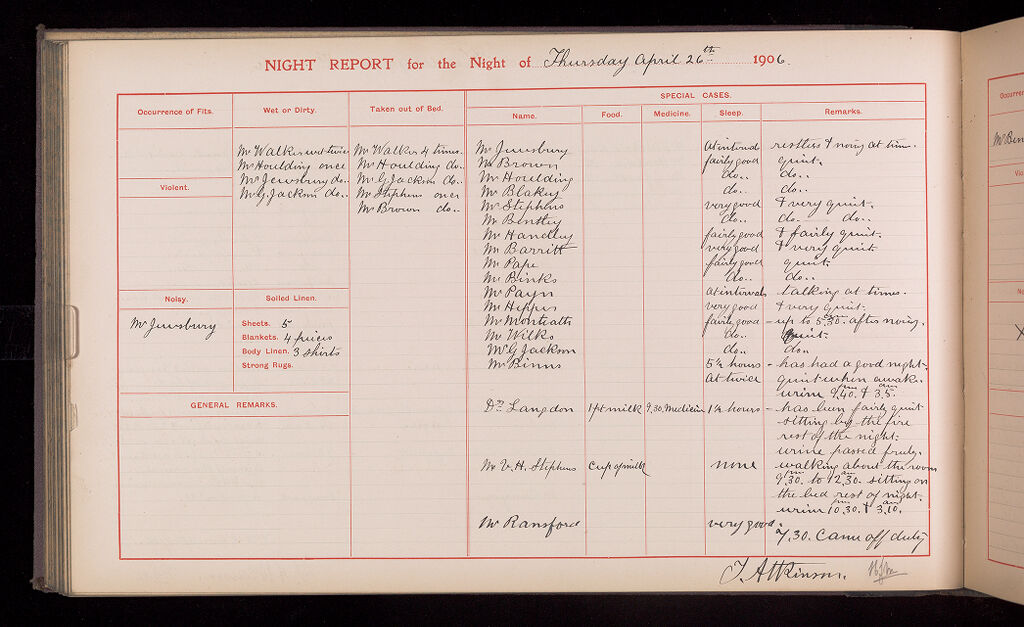 NIGHT REPORT for the Night of Thursday April 26th 1906.
Occurrence of Fits.
Violent.
Noisy.
Mr Jewsbury
Wet or Dirty.
Mr Walker wet twice
Mr Houlding once
Mr Jewsbury do..
Mr G. Jackson do..
Soiled Linen.
Sheets. 5
Blankets. 4 pieces
Body Linen. 3 shirts
Strong Rugs.
GENERAL REMARKS.
Taken out of Bed.
Mr Walker 4 times.
Mr Houlding do..
Mr G Jackson do..
Mr Stephens once
Mr Brown do..
SPECIAL CASES.
Name. Food. Medicine. Sleep. Remarks.
Mr Jewsbury at interval restless & noisy at time.
Mr Brown fairly good quiet.
Mr Houlding do.. do..
Mr Blakey do.. do..
Mr Stephens very good & very quiet.
Mr Bentley do.. do.. do..
Mr Handley fairly good & fairly quiet.
Mr Barritt very good & very quiet
Mr Pape fairly good quiet.
Mr Binks do.. do..
Mr Payn at intervals talking at times.
Mr Hipper very good & very quiet.
Mr Monteath fairly good – up to 5.30. after noisy.
Mr Wilks do.. quiet.
Mr G Jackson do.. do..
Mr Binns 5½ hours – has had a good night.
At twice quiet when awake.
urine 9.40.pm & 3.5.am
Dr. Langdon 1pt milk 9.30. Medicine 1½ hours – has been fairly quiet
sitting by the fire
rest of the night.
urine passed freely.
Mr V. H. Stephens Cup of milk none walking about the room
9.30.pm to 12.30.am sitting on
the bed rest of night.
urine 10.30.pm & 3.10.am
Mr Ransford very good.
7.30. Came off duty
J. Atkinson.